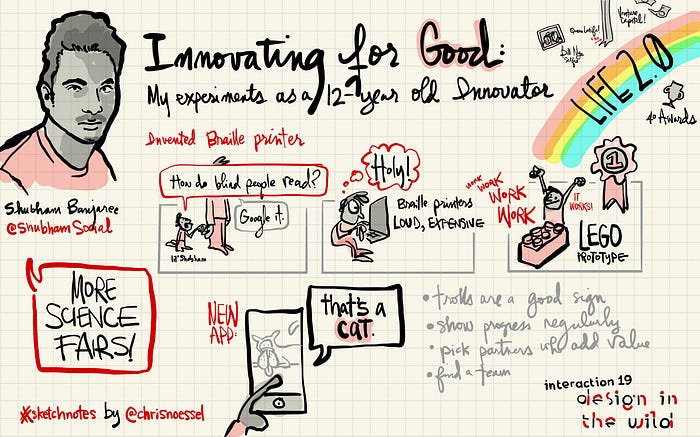 Innovating for Good:
My experiments as a 12-year old Innovator
Shubham Banjaree
@Shubham Social
Invented Braille printer
How do blind people read?
Google it.
lil' Shubham
Holy!
Braille printers
LOUD, EXPENSIVE
WORK WORK
WORK
WORK
IT
WORKS!
1
LEGO
PROTOTYPE
Queen Latifah!
Bill Nye
Selfie
Venture
Capital!
LIFE 2.0
40 Awards
MORE
SCIENCE
FAIRS!
NEW
APP:
that's a
CAT.
• trolls are a good sign
• show progress regularly
• pick partners who add value
• find a team
#sketchnotes by @chrisnoessel
interaction 19
design in
the wild